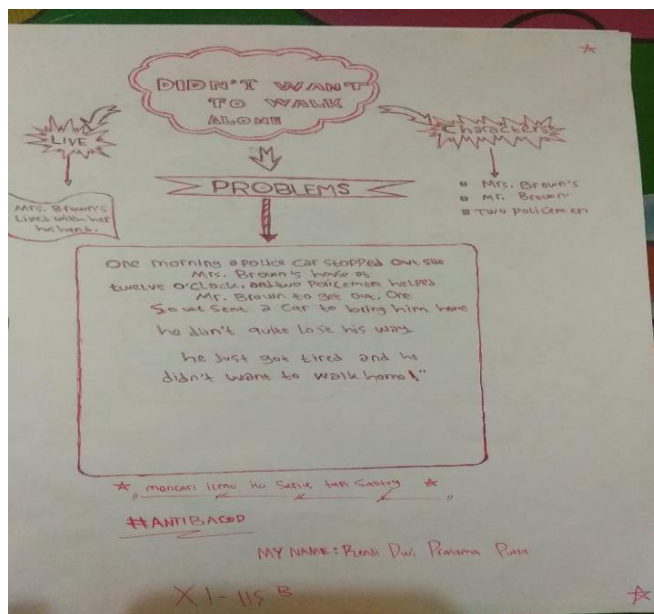 DIDN'T WANT
TO WALK
ALONE
LIVE
Characters
Mrs. Brown's
Lived with her
PROBLEMS
Mrs. Brown's
Mr. Brown
Two policemen
One morning a police car stopped out
Mrs. Brown's house at
twelve o'clock. and two policemen helped
Mr. Brown to get out. One
So we sent a car to bring him home
he didn't quite lose his way
he just got tired and he
didn't want to walk home!"
mencari ilmu itu Serius tapi Santuy
#ANTIBACOD
MY NAME: Rendi Dwi Pratama Putra
XI-IIS B